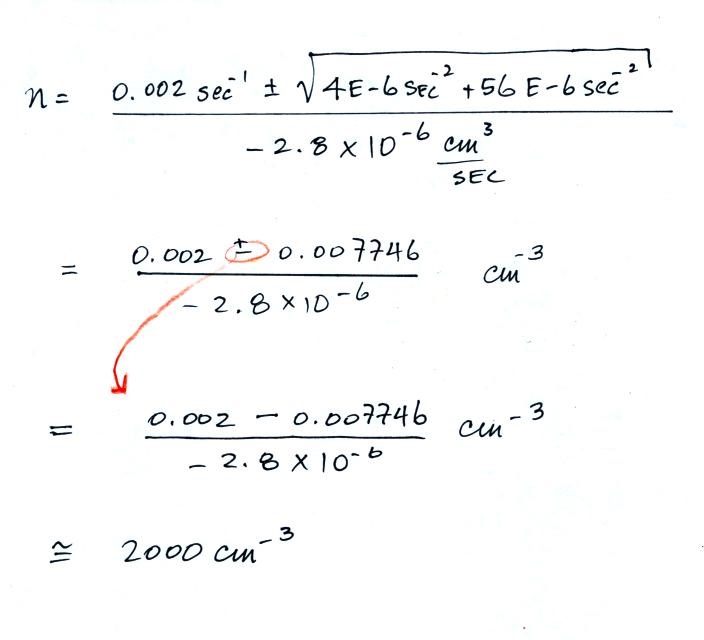 n = (0.002 sec⁻¹ ± √(4E-6 sec⁻² + 56 E-6 sec⁻²)) / (-2.8 × 10⁻⁶ cm³/SEC)
= (0.002 ± 0.007746) / (-2.8 × 10⁻⁶) cm⁻³
= (0.002 - 0.007746) / (-2.8 × 10⁻⁶) cm⁻³
≅ 2000 cm⁻³